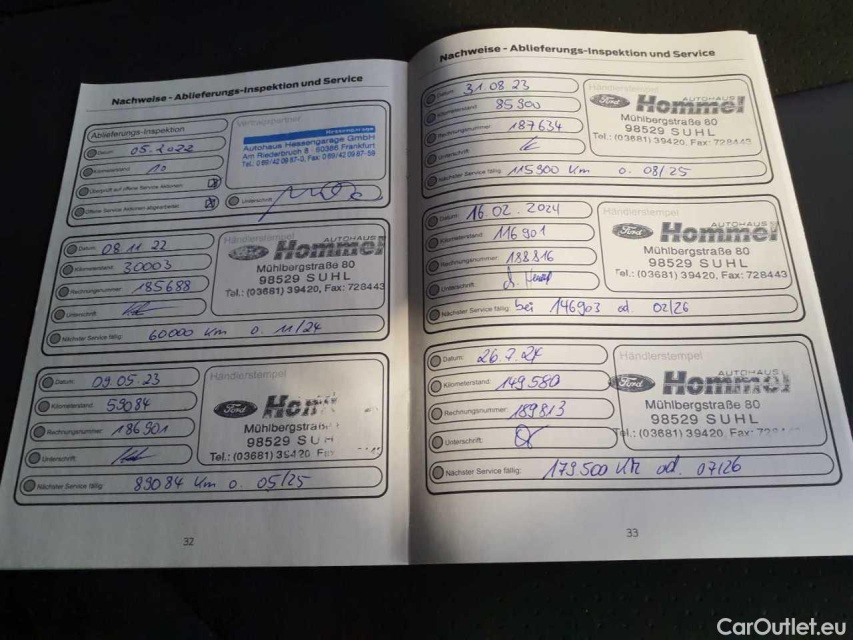 Nachweise - Ablieferungs-Inspektion und Service
Ablieferungs-Inspektion
Datum: 05.2022
Kilometerstand: 10
Überprüft auf offene Service Aktionen
Offene Service Aktionen abgearbeitet
Vertragspartner
Hessengarage
Autohaus Hessengarage GmbH
Am Riederbruch 8 · 60386 Frankfurt
Tel.: 0 69/42 09 87-0, Fax: 0 69/42 09 87-59
Unterschrift
Datum: 08.11.22
Kilometerstand: 30003
Rechnungsnummer: 185688
Unterschrift:
Händlerstempel
Ford
AUTOHAUS
Hommel
Mühlbergstraße 80
98529 SUHL
Tel.: (03681) 39420, Fax: 728443
Nächster Service fällig: 60000 Km o. 11/24
Datum: 09.05.23
Kilometerstand: 59084
Rechnungsnummer: 186901
Unterschrift:
Händlerstempel
Ford
Mühlbergstraße
98529
Tel.: (03681) 39420
Nächster Service fällig: 89084 Km o. 05/25
32
Nachweise - Ablieferungs-Inspektion und Service
Datum: 31.08.23
Kilometerstand: 85900
Rechnungsnummer: 187634
Unterschrift:
Händlerstempel
Ford
AUTOHAUS
Hommel
Mühlbergstraße 80
98529 SUHL
Tel.: (03681) 39420, Fax: 728443
Nächster Service fällig: 115900 Km o. 08/25
Datum: 16.02.2024
Kilometerstand: 116901
Rechnungsnummer: 188816
Unterschrift:
Händlerstempel
Ford
AUTOHAUS
Hommel
Mühlbergstraße 80
98529 SUHL
Tel.: (03681) 39420, Fax: 728443
Nächster Service fällig: bei 146903 od. 02/26
Datum: 26.7.24
Kilometerstand: 149580
Rechnungsnummer: 189813
Unterschrift:
Händlerstempel
Ford
AUTOHAUS
Hommel
Mühlbergstraße 80
98529 SUHL
Tel.: (03681) 39420, Fax:
Nächster Service fällig: 179500 Km od. 07/26
33
CarOutlet.eu